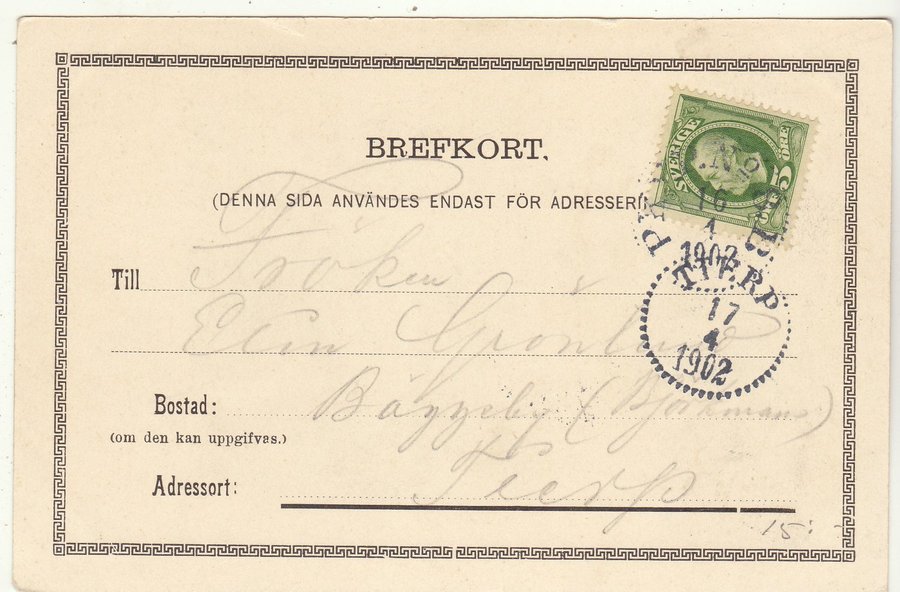 BREFKORT.
(DENNA SIDA ANVÄNDES ENDAST FÖR ADRESSERIN
SVERIGE 5 ÖRE
1902
TIERP
17
4
1902
Till Fröken
Elin Grönlund
Bostad: Bäggeby (Björkmans)
(om den kan uppgifvas.)
Adressort: Tierp
15:-